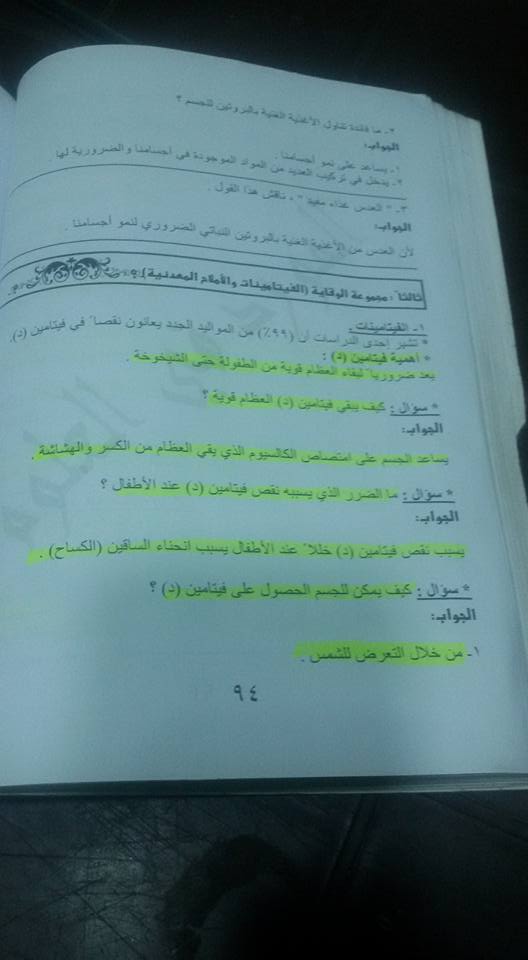 ٢- ما فائدة تناول الأغذية الغنية بالبروتين للجسم ؟
الجواب:
١- يساعد على نمو أجسامنا .
٢- يدخل في تركيب العديد من المواد الموجودة في أجسامنا والضرورية لها
٣- " العدس غذاء مفيد " ، ناقش هذا القول .
الجواب:
لأن العدس من الأغذية الغنية بالبروتين النباتي الضروري لنمو أجسامنا .
ثالثاً : مجموعة الوقاية (الفيتامينات والأملاح المعدنية) :
١- الفيتامينات :
* تشير إحدى الدراسات أن (٩٩٪) من المواليد الجدد يعانون نقصاً في فيتامين (د).
* أهمية فيتامين (د) :
يعد ضرورياً لبقاء العظام قوية من الطفولة حتى الشيخوخة .
* سؤال : كيف يبقي فيتامين (د) العظام قوية ؟
الجواب:
يساعد الجسم على امتصاص الكالسيوم الذي يقي العظام من الكسر والهشاشة .
* سؤال : ما الضرر الذي يسببه نقص فيتامين (د) عند الأطفال ؟
الجواب:
يسبب نقص فيتامين (د) خللاً عند الأطفال يسبب انحناء الساقين (الكساح) .
* سؤال : كيف يمكن للجسم الحصول على فيتامين (د) ؟
الجواب:
١- من خلال التعرض للشمس .
٩٤